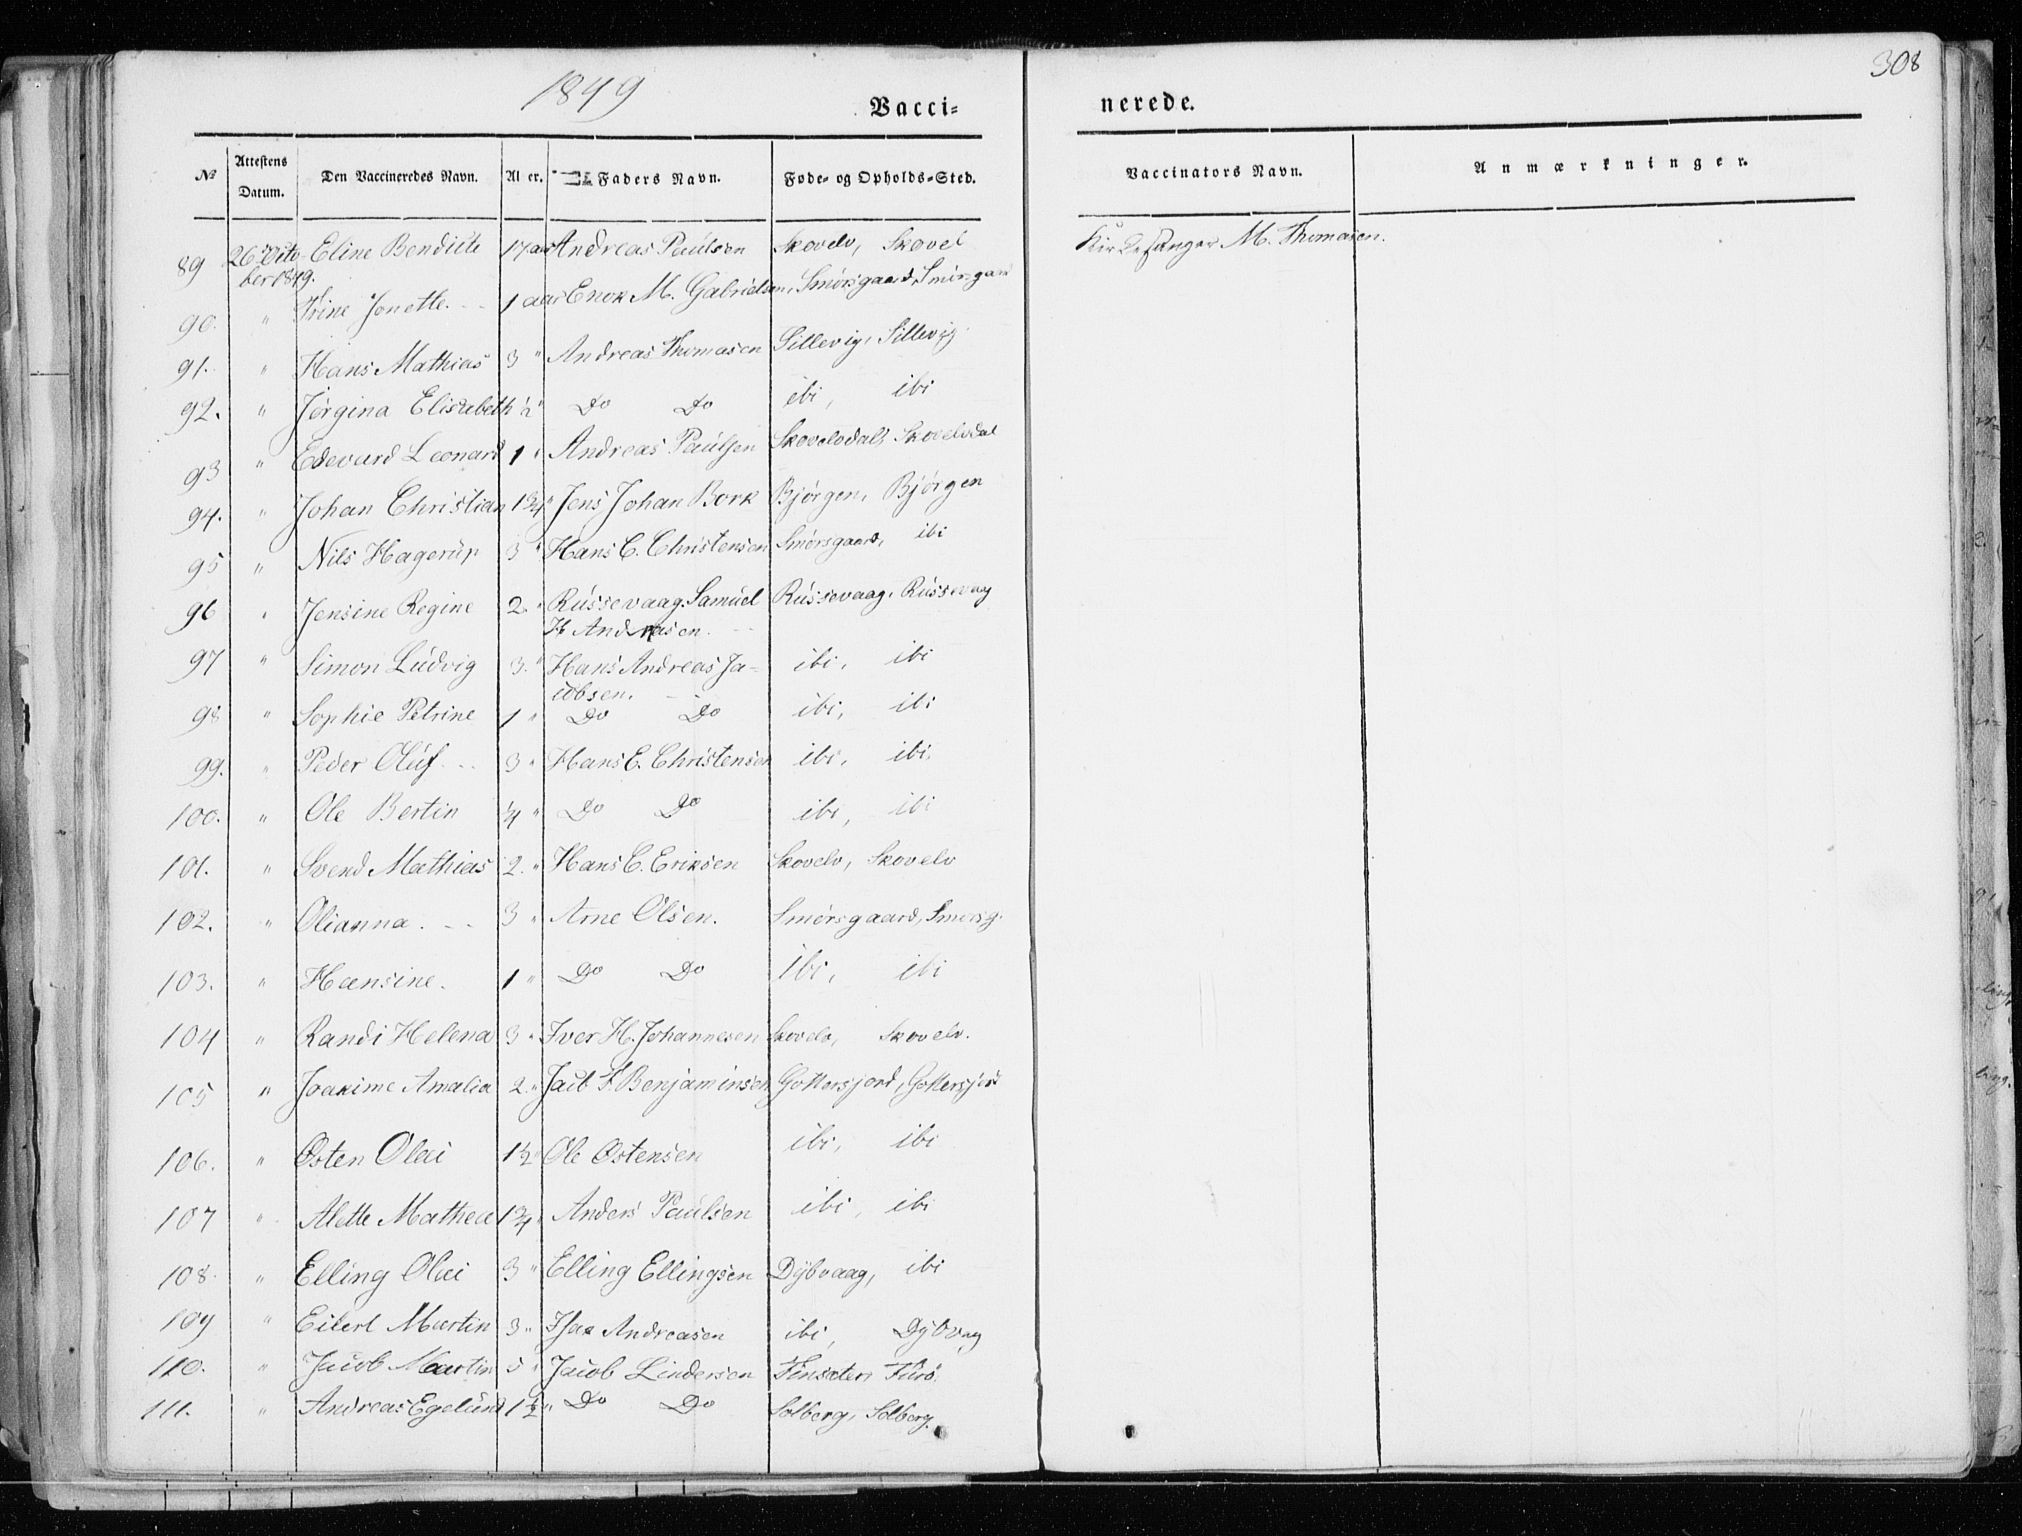 308
1849
Vacci=
nerede.
№ Attestens Datum. Den Vaccineredes Navn. Al er. Faders Navn. Føde- og Opholds-Sted. Vaccinators Navn. Anmærkninger.
89 26 Octo- Eline Bendicte 17 aar Andreas Paulsen Skovelv, Skovel Kirkesanger M. Thomasen.
ber 1849.
90. " Trine Jonette. - - 1 aar Enok M. Gabrielsen, Smørsgaard, Smørsgaard
91. " Hans Mathias 3 " Andreas Thomasen Sillevig, Sillevig
92. " Jørgina Elisabeth ½ " Do Do ibi, ibi
93 " Edevard Leonard 1 " Andreas Paulsen Skovelvdal, Skovelvdal
94. " Johan Christian 1¾ " Jens Johan Bork Bjørgen, Bjørgen
95 " Nils Hagerup 3 " Hans C. Christensen Smørsgaard, ibi
96 " Jensine Regine 2 " Russevaag Samuel Russevaag, Russevaag
H Andreasen. -
97 " Simon Ludvig 3. " Hans Andreas Ja- ibi, ibi
cobsen. -
98 " Sophie Petrine 1 " Do Do ibi, ibi
99. " Peder Oluf - - 3 " Hans C. Christensen ibi, ibi
100. " Ole Bertin ¼ " Do Do ibi, ibi
101. " Svend Mathias 2. " Hans C. Eriksen Skovelv, Skovelv
102. " Olianna. - - 3 " Arne Olsen. Smørsgaard, Smørsg.
103. " Hansine. 1 " Do Do ibi, ibi
104 " Randi Helena 3 " Iver H. Johannesen Skovelv, Skovelv.
105 " Joakime Amalia 2 " Jacb F. Benjaminsen Gottersjord, Gottersjord
106. " Østen Olai 1½ " Ole Østensen ibi, ibi
107 " Alette Mathea 1¾ " Anders Paulsen ibi, ibi
108. " Elling Olai 3 " Elling Ellingsen Dybvaag, ibi
109 " Eilert Martin 3 " Isac Andreasen ibi, Dybvag
110. " Jacob Martin 5 " Jacob Lindersen Finsæter, Furø.
111. " Andreas Egelund 1½ " Do Do Solberg, Solberg.